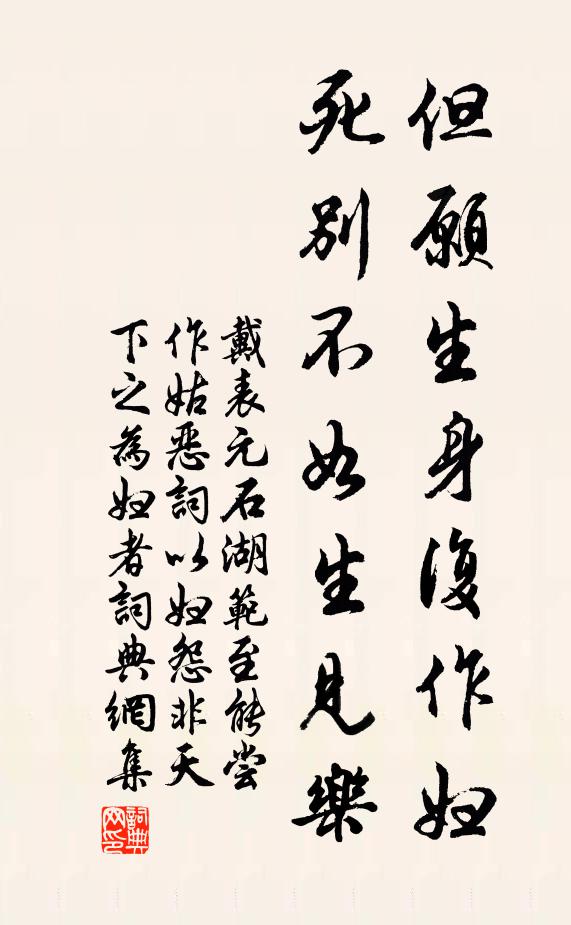 但願生身復作妇
死别不如生見樂
戴表元石湖範至能尝
作姑恶詞以妇怨非天
下之為妇者詞典網集
詞典
网印